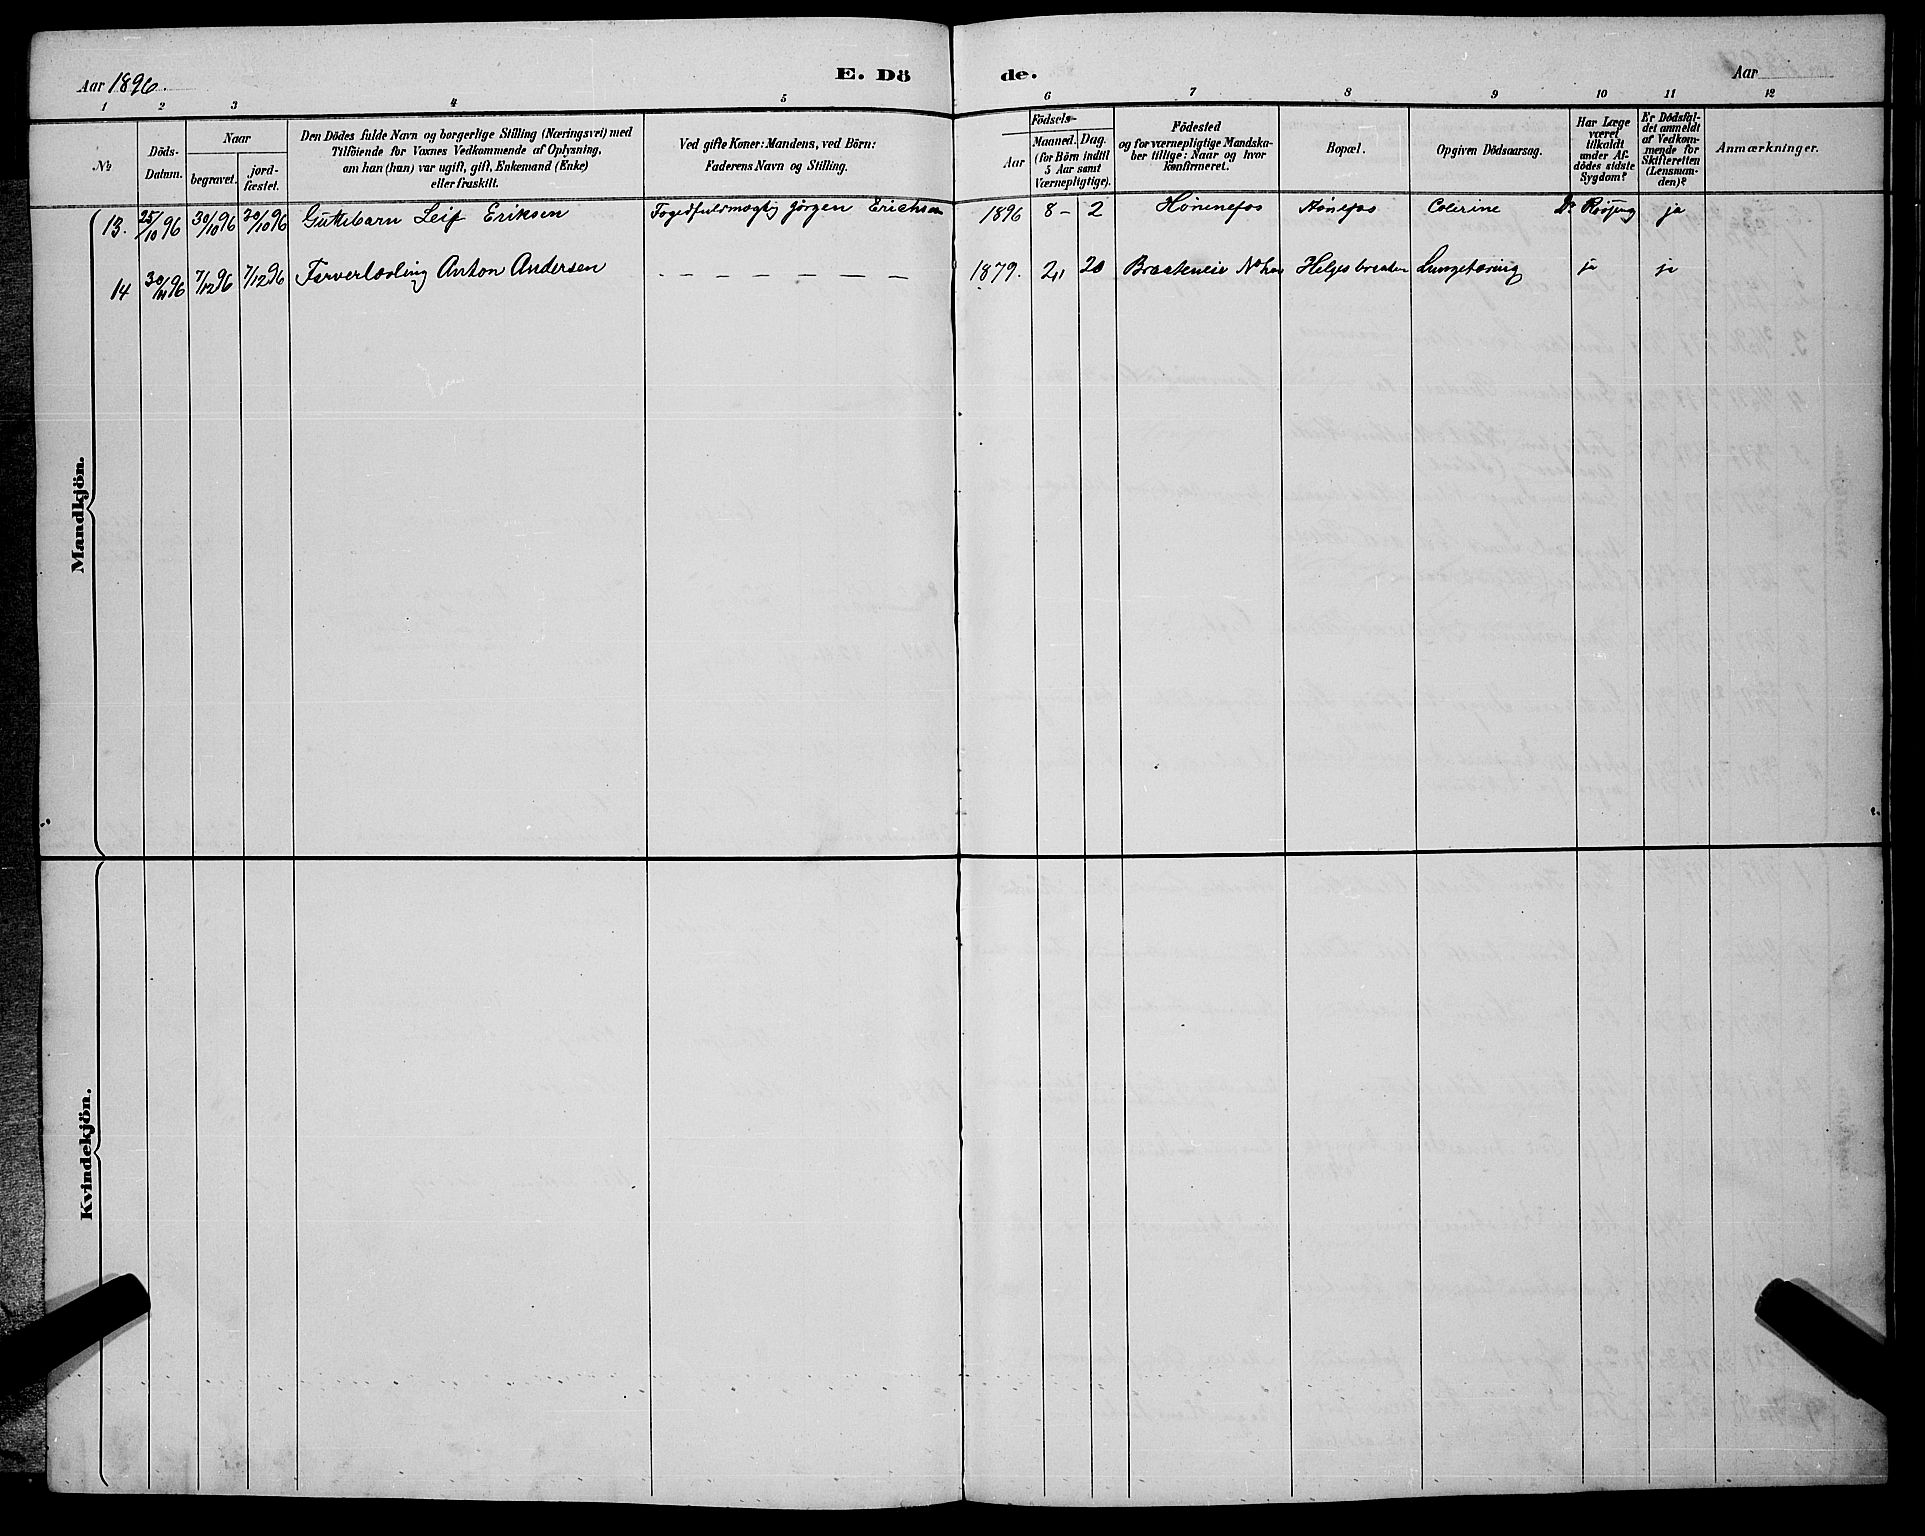 Aar 1896.
E. Dö
de.
Aar
1 2 3 4 5 6 7 8 9 10 11 12
№
Döds-
Datum.
Naar
begravet.
jord-
fæstet.
Den Dödes fulde Navn og borgerlige Stilling (Næringsvei) med
Tilföiende for Voxnes Vedkommende af Oplysning,
om han (hun) var ugift, gift, Enkemand (Enke)
eller fraskilt.
Ved gifte Koner: Mandens, ved Börn:
Faderens Navn og Stilling.
Födsels-
Aar
Maaned. Dag.
(for Börn indtil
5 Aar samt
Værnepligtige).
Födested
og for værnepligtige Mandska-
ber tillige: Naar og hvor
konfirmeret.
Bopæl.
Opgiven Dödsaarsag.
Har Læge
været
tilkaldt
under Af-
dödes sidste
Sygdom?
Er Dödsfal-
det anmeldt
af Vedkom-
mende for
Skifteretten
(Lensman-
den)?
Anmærkninger.
Mandkjön.
13. 25/10 96 30/10 96 30/10 96 Guttebarn Leif Eriksen Fogedfuldmægtig Jörgen Erichsen 1896 8 – 2 Hönenefos Hönefos Colerine Dr ja
14 30/11 96 7/12 96 7/12 96 Farverlærling Anton Andersen – – – – – – – 1879. 20 Braateneie Helgesbraaten Lungetæring ja ja
Kvindekjön.